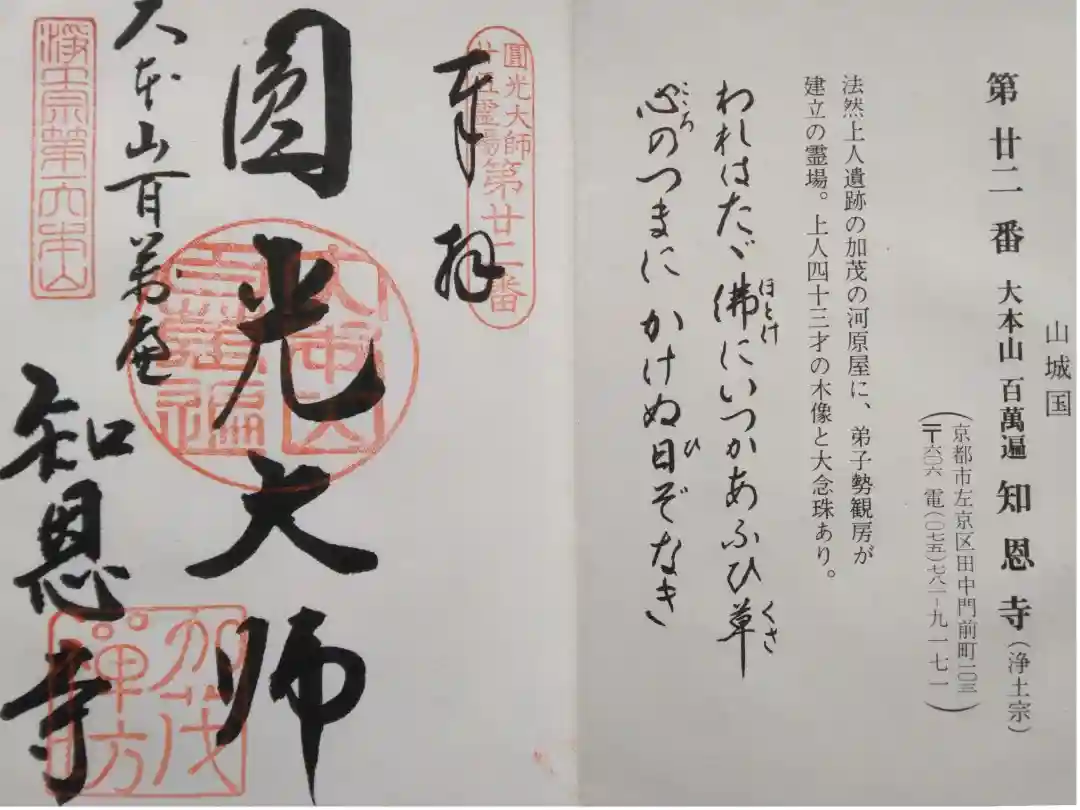 山城国
第廿二番 大本山 百萬遍 知恩寺(浄土宗)
(京都市左京区田中門前町一〇三
〒六〇六 電(〇七五)七八一-九一七一)
法然上人遺跡の加茂の河原屋に、弟子勢観房が
建立の霊場。上人四十三才の木像と大念珠あり。
われはたゞ佛にいつかあふひ草
ほとけ
くさ
心のつまに かけぬ日ぞなき
こころ
ひ
圓光大師
廿五霊場
第廿二番
奉拝
圓光大師
大本山
百萬遍
大本山百萬遍
知恩寺
加茂
禅房
浄土宗第六本山